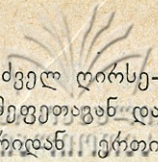 ძველ ღირსე-
მეფეთაგან და
რიდან ერთი